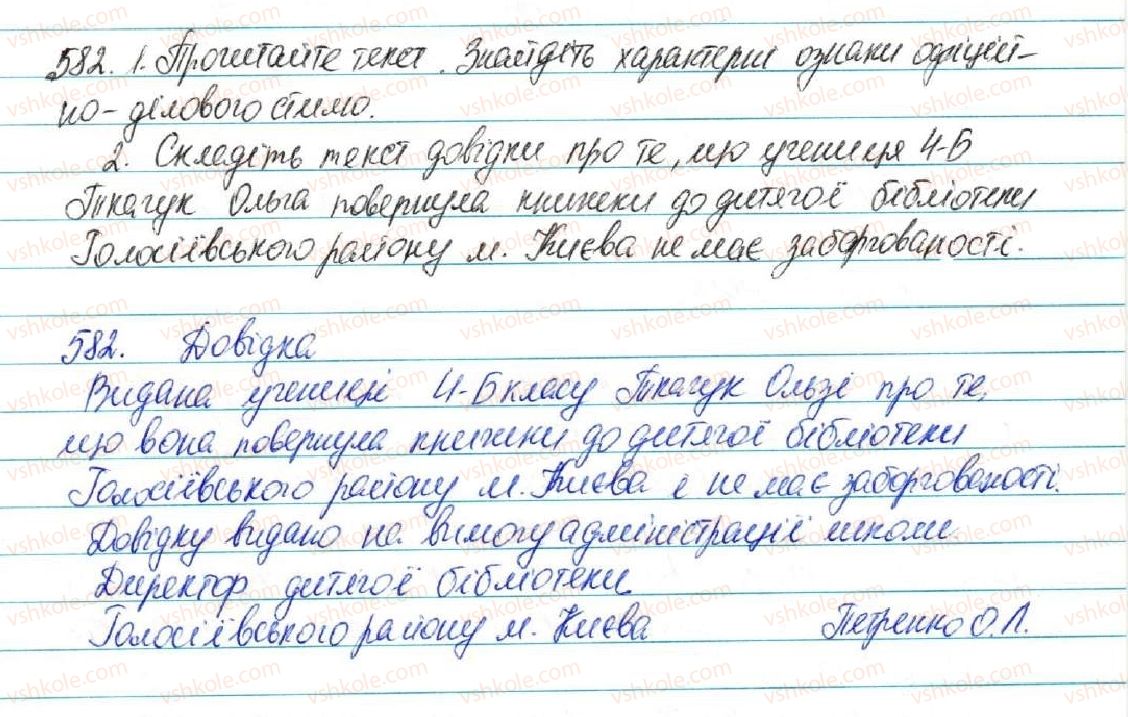 582. 1. Прочитайте текст. Знайдіть характерні ознаки офіцій-
но-ділового стилю.
2. Складіть текст довідки про те, що учениця 4-Б
Ткачук Ольга повернула книжки до дитячої бібліотеки
Голосіївського району м. Києва не має заборгованості.
582. Довідка
Видана учениці 4-Б класу Ткачук Ользі про те,
що вона повернула книжки до дитячої бібліотеки
Голосіївського району м. Києва і не має заборгованості.
Довідку видано на вимогу адміністрації школи.
Директор дитячої бібліотеки
Голосіївського району м. Києва Петренко О.Л.